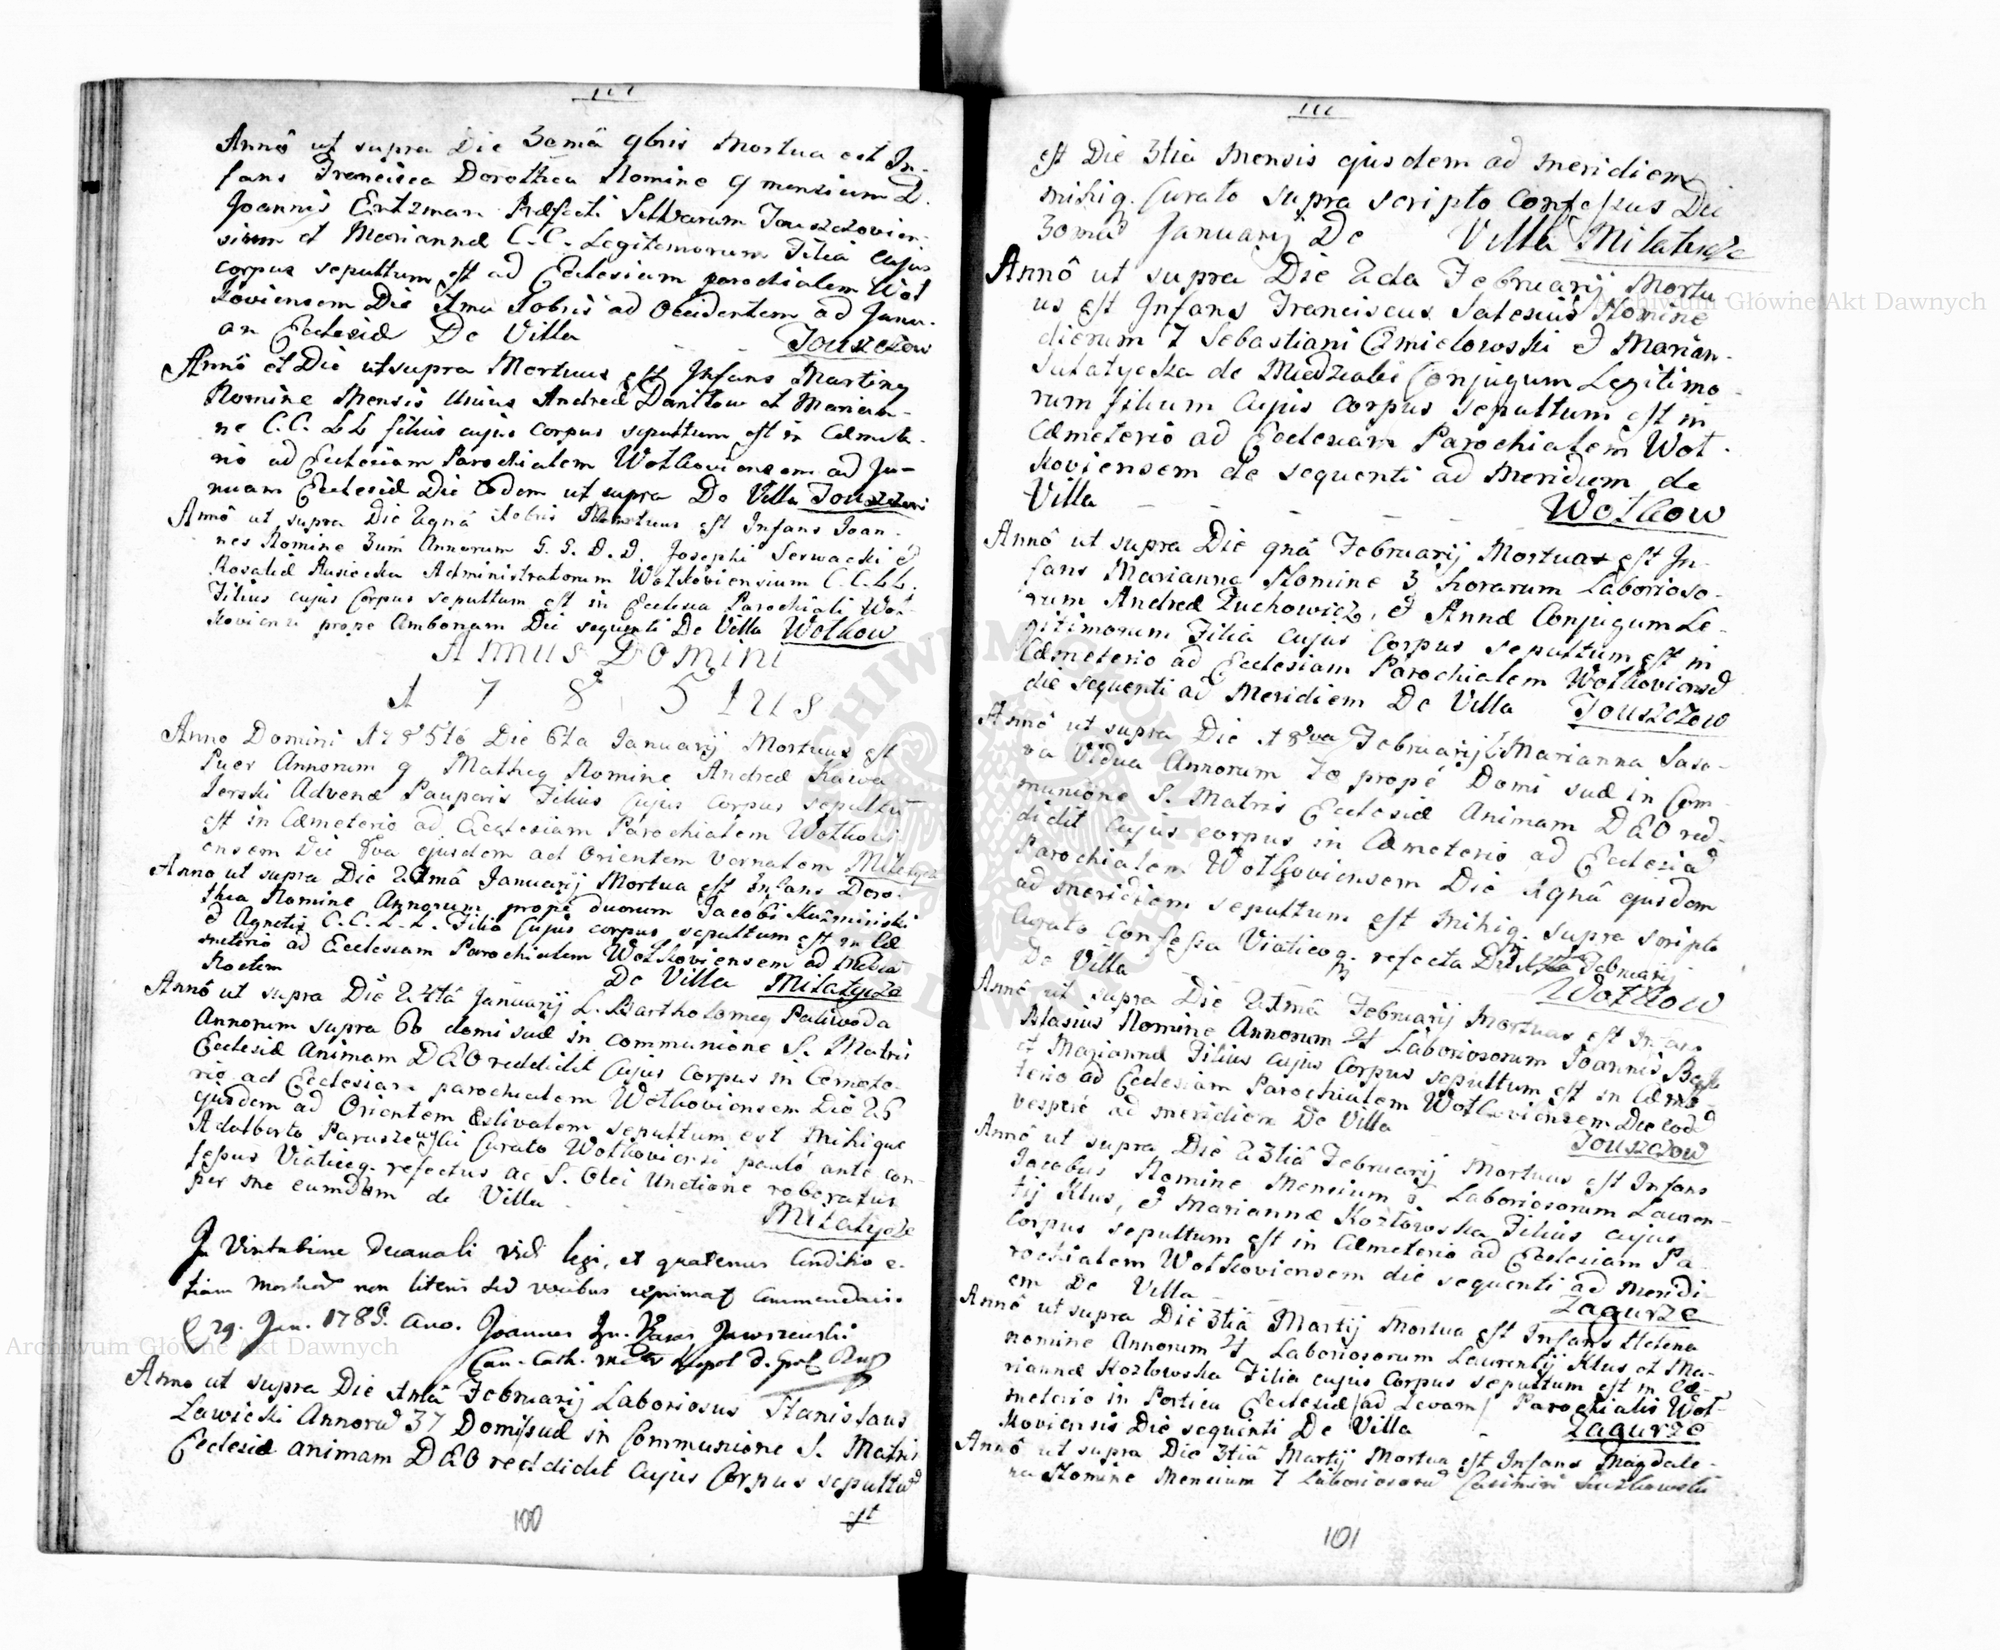 Annô ut supra Die 30mâ 9bris Mortua est In-
fans Francisca Dorothea Nomine 9 mensium D.
Joannis Ertzman Præfecti Silvarum Touszczovien-
sium et Mariannæ C.C. Legitemorum Filia cujus
corpus sepultum est ad Ecclesiam parochialem Wol
koviensem Die 1ma Xobris ad Occidentem ad Janu-
am Ecclesiæ De Villa Touszczow
Annô et Die ut supra Mortuus est Infans Martinq
Nomine Mensis Unius Andreæ Daniłow et Marian-
ne C.C. LL filius cujus corpus sepultum est in Cæmete-
rio ad Ecclesiam Parochialem Wołkoviensem ad Ja-
nuam Ecclesiæ Die Eodem ut supra De Villa
Annô ut supra Die Xobris Mortuus est Infans Joan-
nes Nomine 3um Annorum G. G. D. D. Josephi Serwacki &
Rosaliæ Rusiecka Administratorum Wołkoviensium C.C.LL.
Filius cujus Corpus sepultum est in Ecclesia Parochiali Woł-
koviensi prope Ambonam Die sequenti De Villa Wołkow
Annus Domini
1785tus
Anno Domini 1785to Die 6ta Januarij Mortuus est
Puer Annorum 9 Matheq Nomine Andreæ Kawa
lerski Advenæ Pauperis Filius Cujus Corpus sepultū
est in Cæmeterio ad Ecclesiam Parochialem Wołkovi
ensem Die 8va ejusdem ad Orientem Vernalem
Anno ut supra Die Januarij Mortua est Infans Doro-
thea Nomine Annorum propè duorum Jacobi Kuzminski
& Agnetis C.C.L.L. Filia Cujus corpus sepultum est in Cæ
meterio ad Ecclesiam Parochialem Wołkoviensem ad Mediā
Noctem De Villa Miłatycze
Annô ut supra Die 24tâ Januarij L. Bartholomeq Paliwoda
Annorum supra 60 domi suæ in communione S. Matris
Ecclesiæ Animam DEO reddidit Cujus Corpus in Cemete-
rio ad Ecclesiam parochialem Wołkoviensem Die 26
ejusdem ad Orientem Æstivalem sepultum est Mihique
Adalberto Paruszewski Curato Wołkoviensi pauló ante con-
fessus Viaticoq. refectus ac S. Olei Unctione roboratus
per me eumdem de Villa
Miłatycze
In Visitatione Decanali vidi legi, et quatenus Conditio e-
tiam non literis sed vocibus exprimat Commendavi.
29. Jan. 1785. Ano. Joannes
Can. Cath.
Anno ut supra Die 1mâ Februarij Laboriosus Stanislaus
Lawicki Annorū 37 Domi suæ in Communione S. Matris
Ecclesiæ animam DEO reddidit Cujus Corpus sepultū
est
100
est Die 3tia Mensis ejusdem ad meridiem
mihiq. Curato supra scripto Confessus Die
30mâ Januarij De Villa Miłatycze
Annô ut supra Die 2da Februarij Mortu-
us est Infans Franciscus Salesius Nomine
dierum 7 Sebastiani Cmielowski & Marian-
de Conjugum Legitimo-
rum filium Cujus Corpus sepultum est in
Cæmeterio ad Ecclesiam Parochialem Woł-
koviensem de sequenti ad Meridiem de
Villa Wołkow
Annô ut supra Die 9nâ Februarij Mortua est In-
fans Marianna Nomine 3 horarum Laborioso-
rum Andreæ Zuchowicz, & Annæ Conjugum Le-
gitimorum Filia cujus Corpus sepultum est in
Cæmeterio ad Ecclesiam Parochialem Wołkoviensē
die sequenti ad Meridiem De Villa Touszczow
Annô ut supra Die 18va Februarij Marianna Saso-
wa Vidua Annorum 70 propè Domi suæ in Com-
munione S. Matris Ecclesiæ Animam DEO red-
didit cujus corpus in Cæmeterio ad Ecclesiā
Parochialem Wołkoviensem Die ejusdem
ad meridiem sepultum est Mihiq. supra scripto
Curato Confessa Viaticoq. refecta Die Februarij
De Villa Wołkow
Annô ut supra Die 21mâ Februarij Mortuus est Infans
Blasius Nomine Annorum Laboriosorum Joannis
et Mariannæ Filius cujus Corpus sepultum est in Cæme-
terio ad Ecclesiam Parochialem Wołkoviensem Die eodē
vesperè ad meridiem De Villa
Touszczow
Annô ut supra Die 23tiâ Februarij Mortuus est Infans
Jacobus Nomine Mensium Laboriosorum Lauren-
tij Klus, & Mariannæ Kozłowska Filius cujus
Corpus sepultum est in Cæmeterio ad Ecclesiam Pa-
rochialem Wołkoviensem die sequenti ad Meridi-
em De Villa Zagurze
Annô ut supra Die 3tiâ Martij Mortua est Infans Helena
nomine Annorum Laboriosorum Laurentij Klus et Ma-
riannæ Kozłowska Filia cujus Corpus sepultum est in Cæ-
meterio in Porticu Ecclesiæ /ad Levam/ Parochialis Woł-
koviensis Die sequenti De Villa Zagurze
Annô ut supra Die 3tiâ Martij Mortua est Infans Magdale-
na Nomine Mensium 7 Laboriosorū Casimiri
101
Archiwum Główne Akt Dawnych
Archiwum Główne Akt Dawnych